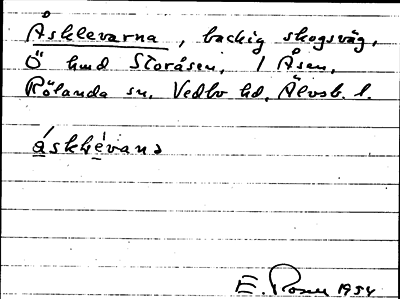 Åsklevarna, backig skogsväg,
Ö hmd Storåsen, i Åsen,
Rölanda sn, Vedbo hd, Älvsb. l.
áskl̥èvana
E. Rosell 1954